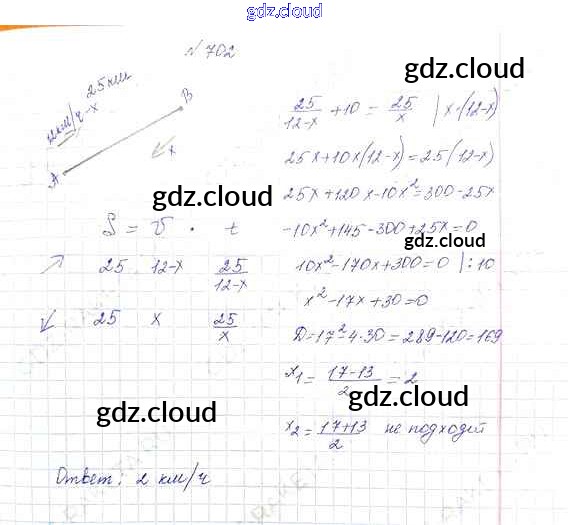 gdz.cloud
№ 702
gdz.cloud
25 км
12 км/ч - x
B
A
x
gdz.cloud
S = v · t
25 12-x 25/(12-x)
25 x 25/x
gdz.cloud
25/(12-x) + 10 = 25/x | x·(12-x)
gdz.cloud
25x+10x(12-x)=25(12-x)
25x+120x-10x²=300-25x
gdz.cloud
-10x²+145-300+25x=0
10x²-170x+300=0 |:10
x²-17x+30=0
D=17²-4·30=289-120=169
x₁=(17-13)/2=2
gdz.cloud
x₂=(17+13)/2 не подходит
gdz.cloud
Ответ: 2 км/ч